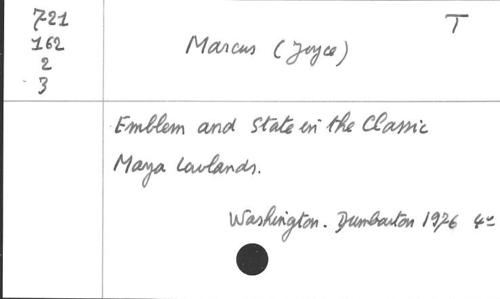 721
162
2
3
T
Marcus (Joyce)
Emblem and State in the Classic
Maya Lowlands.
Washington. Dumbarton 1976 4º